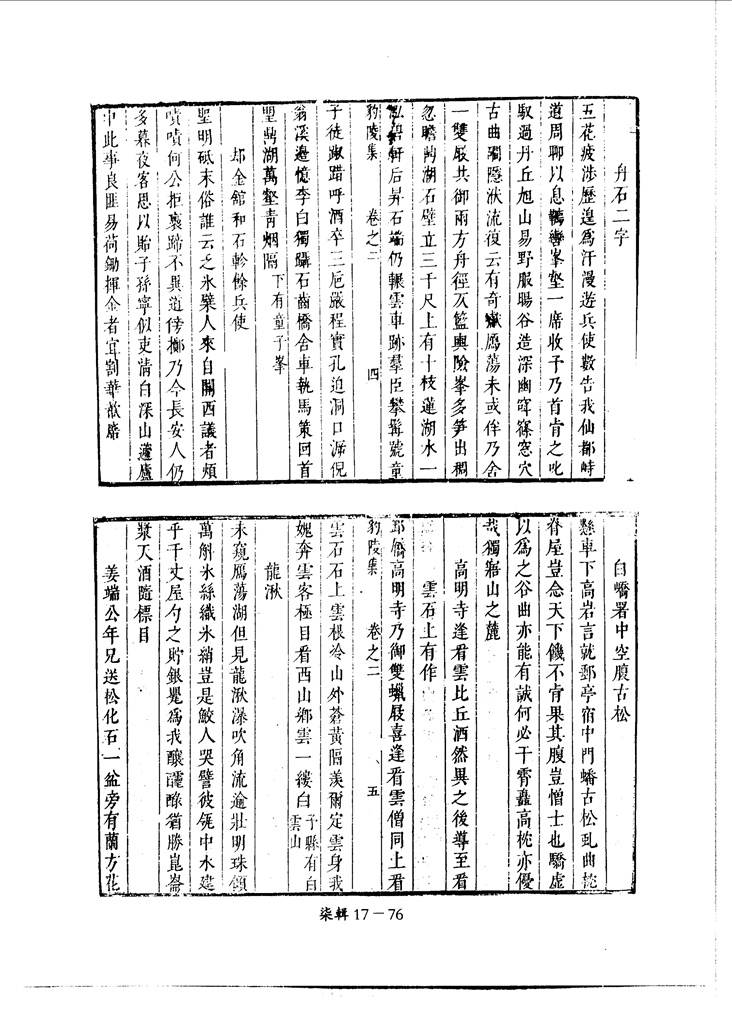 舟石二字
五花疲涉歷遑爲汗漫遊兵使數告我仙都峙
道周聊以息轡峯壑一席收予乃首肯之叱
馭過丹丘旭山易野服暘谷造深幽窪窿窓穴
古曲獨隱洑流復云有奇嶽鴈蕩未或侔乃舍
一雙屐共御兩方舟徑仄籃輿險峯多笋出稠
忽瞻鼎湖石壁立三千尺上有十枝蓮湖水一
泓碧軒后昇石端仍輾雲車跡羣臣攀髯號童
豹陵集　卷之二　四
子徒踧踖呼酒卒三巵嚴程實孔迫洞口漏倪
翁溪邉憶李白獨躡石齒橋舍車執馬策回首
望鼎湖萬壑靑烟隔下有童子峯
却金館和石軫餘兵使
聖明砥末俗誰云之氷檗人來自關西議者頻
嘖嘖何公拒裹蹄不異道傍擲乃今長安人仍
多暮夜客思以貽子孫寧似吏淸白深山邉廬
中此事良匪易荷鋤揮金者宜割華歆席
白嶠署中空腹古松
懸車下高岩言就郵亭宿中門蟠古松虬曲
脊屋豈念天下饑不肯果其腹豈憎士也驕虛
以爲之谷曲亦能有誠何必干霄矗高枕亦優
哉獨寤山之麓
高明寺逢看雲比丘洒然異之後導至看
雲石上有作
邛僑高明寺乃御雙蠟屐喜逢看雲僧同上看
豹陵集　卷之二　五
雲石石上雲根冷山外蒼黃隔羡爾定雲身我
媿奔雲客極目看西山鄉雲一縷白予縣有白雲山
龍湫
未窺鴈蕩湖但見龍湫瀑吹角流逾壯明珠傾
萬斛氷絲織氷綃豈是鮫人哭譬彼瓴中水建
乎千丈屋勺之貯銀甖爲我釀醽醁猶勝崑崙
漿天酒隨標目
姜端公年兄送松化石一盆旁有蘭方花
柒輯 17－76